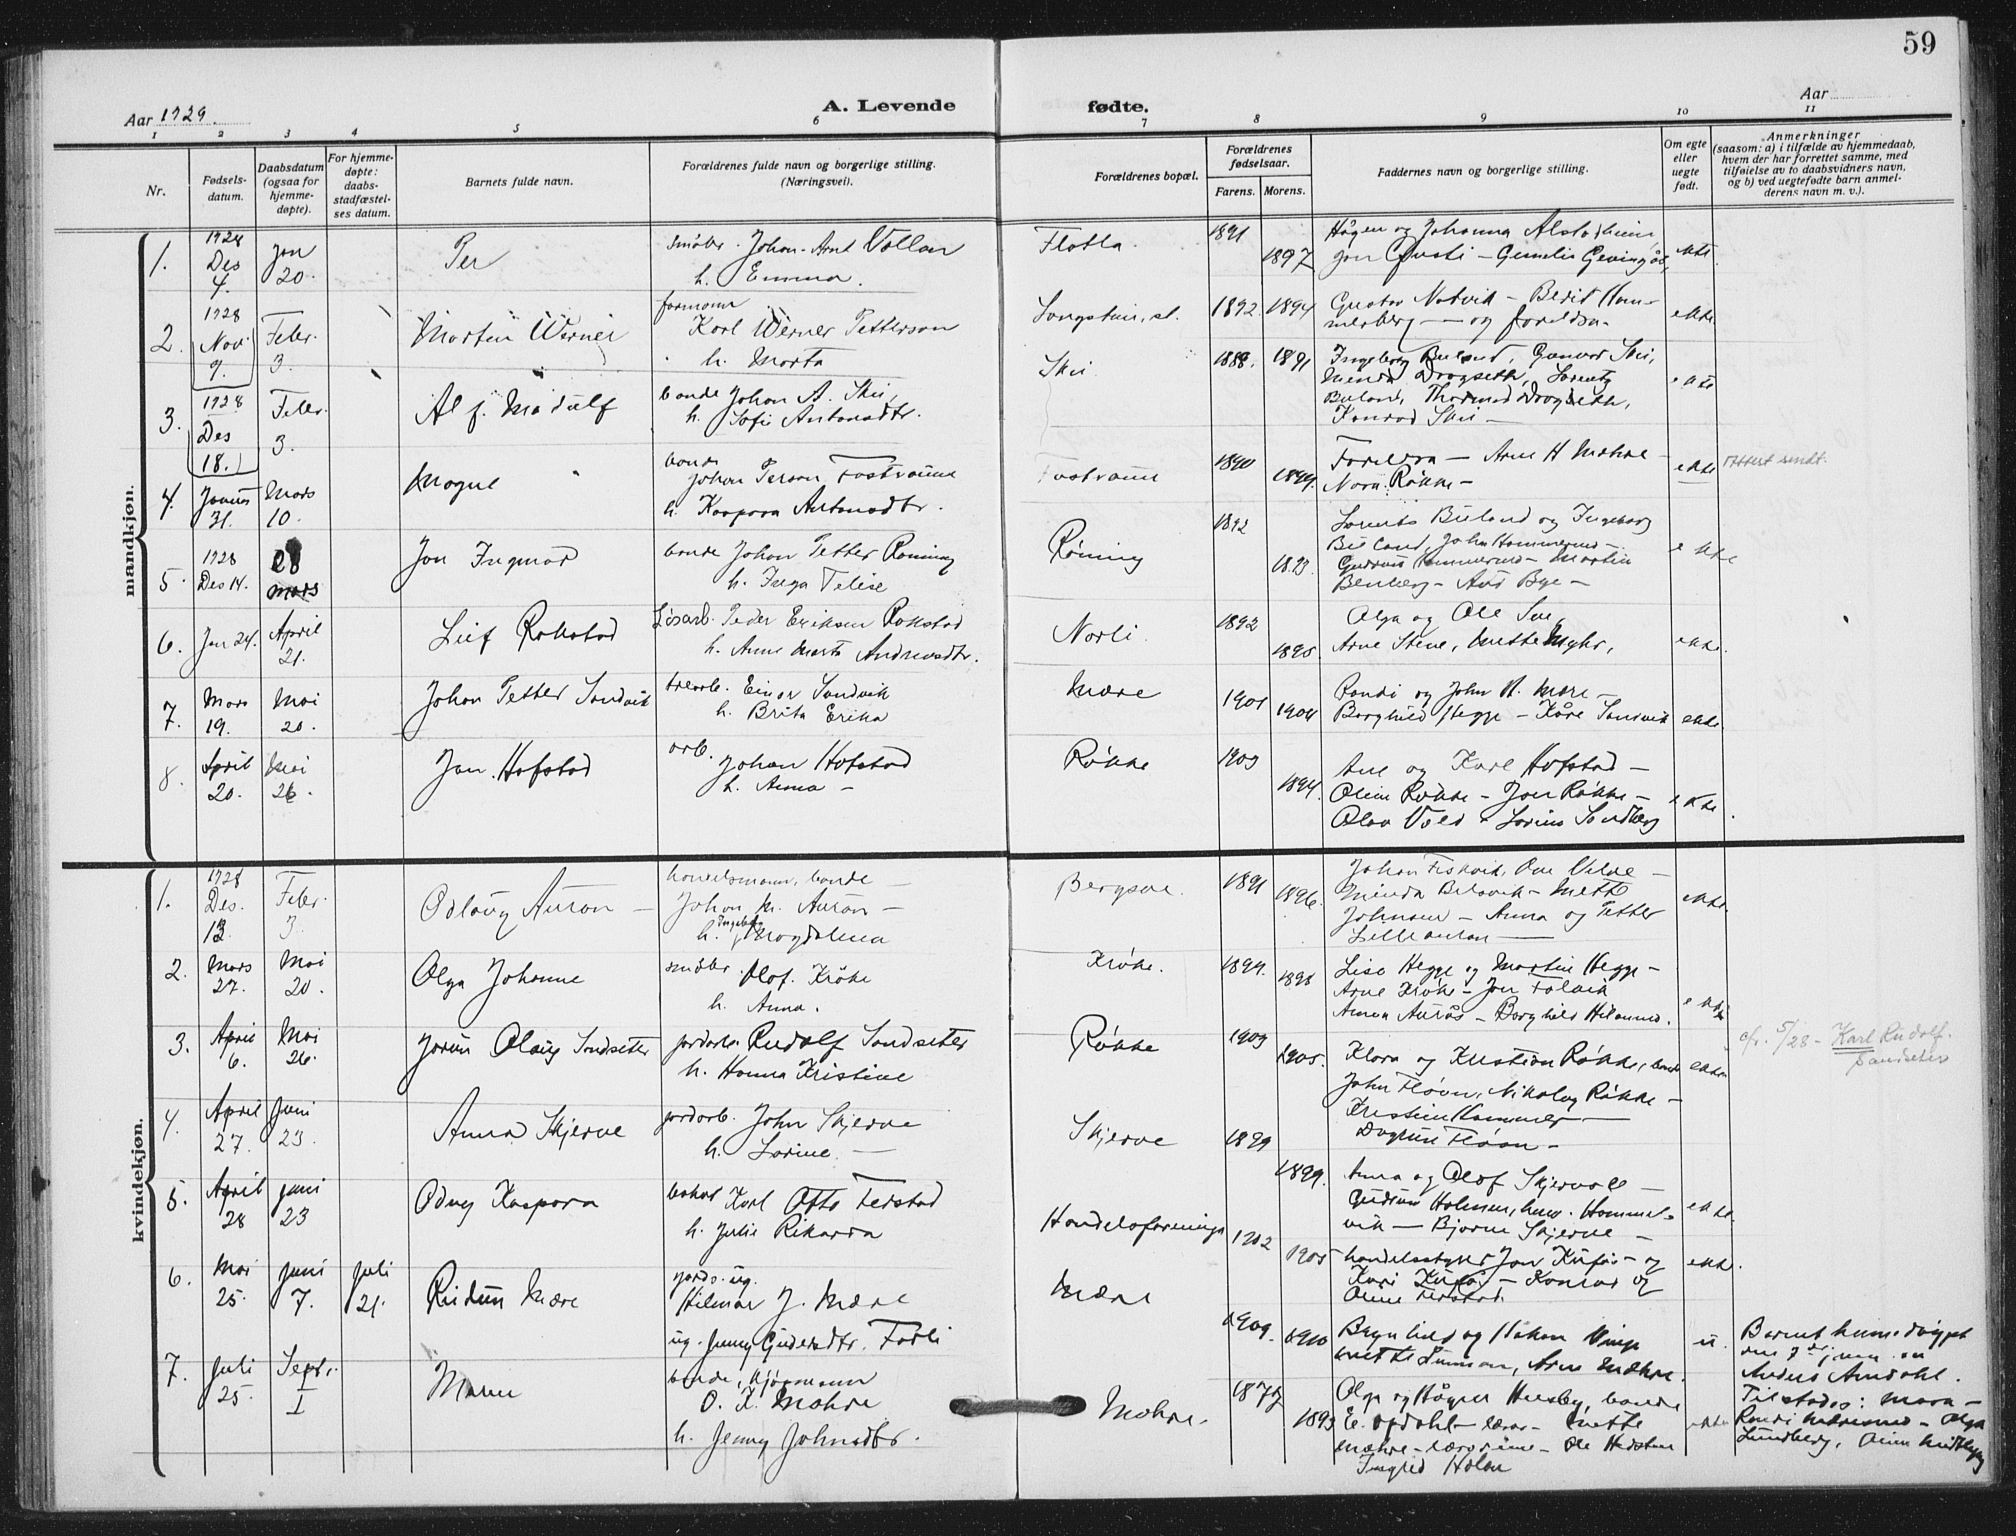 59
Aar 1929
A. Levende fødte.
Aar
1 2 3 4 5 6 7 8 9 10 11
Nr.
Fødsels-
datum.
Daabsdatum
(ogsaa for
hjemme-
døpte).
For hjemme-
døpte:
daabs-
stadfæstel-
ses datum.
Barnets fulde navn.
Forældrenes fulde navn og borgerlige stilling.
(Næringsvei).
Forældrenes bopæl.
Forældrenes
fødselsaar.
Farens. Morens.
Faddernes navn og borgerlige stilling.
Om egte
eller
uegte
født.
Anmerkninger
(saasom: a) i tilfælde av hjemmedaab,
hvem der har forrettet samme, med
tilføielse av to daabsvidners navn,
og b) ved uegtefødte barn anmel-
derens navn m. v.).
mandkjøn.
1. 1928 Des 4. Jan 20. Per
småbr. Johan Arnt Vollan
h. Emma.
Flotla. 1891 1897
Hågen og Johanna
ekte
2. 1928 Nov. 9. Febr. 3. Morten Werner
formann
Karl Werner Petterson
h. Marta
Langstein, st. 1892 1894
Gustav Natvik – Berit Ham-
merberg – og foreldra.
ekte.
3. 1928 Des 18. Febr. 3. Alf Madulf
bonde Johan A. Skei,
h. Sofie Antonsdtr.
Skei 1888. 1891
Ingeborg Buland, Gunvor Skei,
Minda Dragseth, Lorents
Buland, Thormod Dragseth,
Konrad Skei –
ekte
4. Januar 31. Mars 10. Magne
bonde
Johan Person Fostraune
h. Kaspara Antonsdtr.
Fostraune 1890 1899.
Foreldra – Arne H Mæhre –
Nora Røkke –
ekte
attest sendt.
5. 1928 Des 14. 28 mars Jon Ingmar
bonde Johan Petter Røning
h. Inga Telise
Røning 1892 1893
Lorents Buland og Ingeborg
Buland, John Hammersmo –
Gudrun Hammersmo – Martin
Benberg – Aud Bye –
ekte
6. Jan 24. April 21. Leif Rokstad
Løsarb. Peder Eriksen Rokstad
h. Anne Marta Andreasdtr.
Norli 1892 1895
Olga og Ole Sve,
Arne Stene, Mette Myhr,
ekte.
7. Mars 19. Mai 20. Johan Petter Sandvik
trearb. Einar Sandvik
h. Brita Erika
Mære 1901 1904
Randi og John A. Mære –
Borghild Hegge – Kåre Sandvik
ekte.
8. April 20. Mai 26. Jan Hofstad
arb. Johan Hofstad
h. Anna –
Røkke 1903 1894.
Ane og Kare Hofstad –
Oline Røkke – Jon Røkke –
Olav Vold – Lorins Sandberg
ekte.
kvindekjøn.
1. 1928 Des. 13. Febr. 3. Odlaug Auran –
Johan M. Auran –
h. Ingeborg Magdalena
Bergsve. 1891 1896.
Johan Fiskvik, Ove Velve –
Minda Belsvik – Mette
Johnsen – Anna og Petter
Lilleauran –
ekte.
2. Mars 27. Mai 20. Olga Johanne
småbr. Olof. Kråke
h. Anna.
Kråke. 1894. 1898
Lise Hegge og Martin Hegge –
Arne Kråke – Jon Falvik
Anna Aurås – Borghild Hilanmo.
ekte
3. April 6. Mai 26. Jorun Olaug Sandseter
jordarb. Rudolf Sandseter
h. Hanna Kristine
Røkke 1903 1905.
Klara og Kristian Røkke, bonde
John Fløan, Nikolay Røkke –
Kristine Hammer –
Dagrun Fløan –
ekte
cfr. 5/28 – Karl Rudolf.
Sandseter
4. April 27. Juni 23. Anna Skjerve
jordarb. John Skjerve
h. Lorine. –
Skjerve 1899 1899.
Anna og Olof Skjervoll –
Gudrun Holmen, Hommel-
vik – Bjarne Skjerve –
ekte.
5. April 28 juni 23 Odny Kaspara
Karl Otto Ferstad
h. Julie Rikarda
Handelsforeninga 1902 1905
handelsstyrer Jon Kufås – og
Kari Kufås – Konrad og
Oline Ferstad.
ekte.
6. Mai 25. juni 7. juli 21. Reidun Mære
gards. ug.
Hilmar J. Mære
ug. Jenny Gudersdtr. Forli
Mære 1909. 1910
Brynhild og Håkon Vinge
Mette Simonsen, Arne Mæhre.
u.
Barnet heimedøypt
den 7de juni av
Anders Arndahl.
Tilstades: Mara –
Randi Mæresmo – Olga
Lundberg,
7. Juli 25. Septr. 1 Maren
bonde, kjøpmann
O. K. Mæhre
h. Jenny Johnsdtr.
Mæhre. 1872 1893
Olga og Hågen Husby, bonde
E. Opdahl – lærar – Mette
Mæhre – lærarinne – Ole Hedstein
Ingrid Halse
ekte